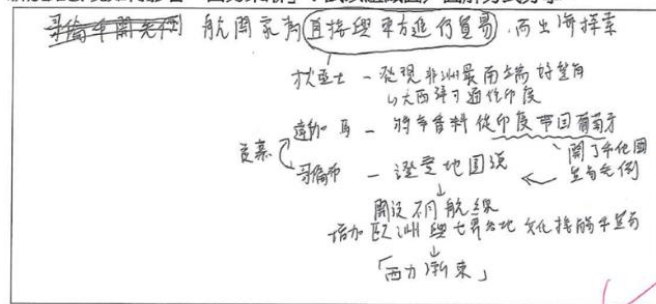 航海家為直接與東方進行貿易,而出海探索
狄亞士-發現非洲最南端好望角
大西洋可通往印度
達伽馬-將香料從印度帶回葡萄牙
哥倫布-證實地圓說
開了
先例
開設不同航線
增加歐洲與世界各地文化接觸和貿易
「西力漸東」